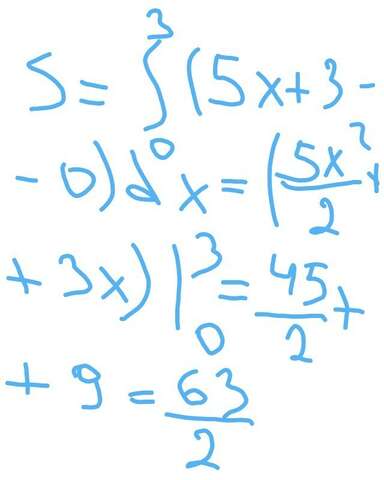 S = ∫₀³ (5x + 3 -
- 0) dx = (5x²/2 +
+ 3x) |₀³ = 45/2 +
+ 9 = 63/2